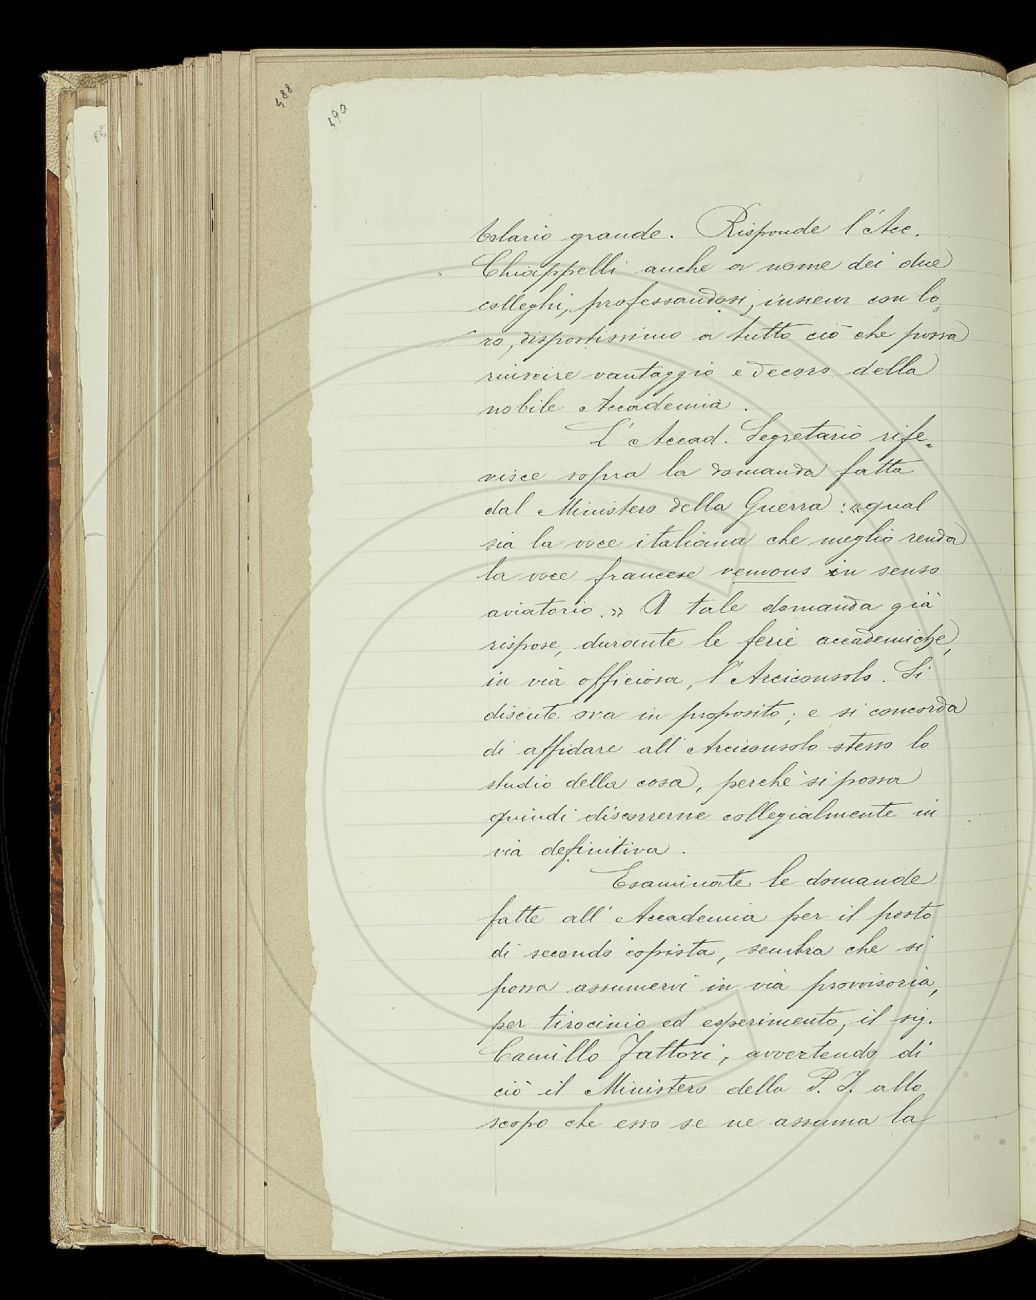 588
590
bolario grande. Risponde l'Acc.
Chiappelli anche a nome dei due
colleghi, professandosi, insiem con lo„
ro, dispostissimo a tutto ciò che possa
riuscire vantaggio e decoro della
nobile Accademia.
L'Accad. Segretario rife„
risce sopra la domanda fatta
dal Ministero della Guerra: «qual
sia la voce italiana che meglio renda
la voce francese vemous in senso
aviatorio.» A tale domanda già
rispose, durante le ferie accademiche,
in via officiosa, l'Arciconsolo. Si
discute ora in proposito; e si concorda
di affidare all'Arciconsolo stesso lo
studio della cosa, perchè si possa
quindi discorrerne collegialmente in
via definitiva.
Esaminate le domande
fatte all'Accademia per il posto
di secondo copista, sembra che si
possa assumervi in via provvisoria,
per tirocinio ed esperimento, il sig.
Camillo Fattori, avvertendo di
ciò il Ministero della P. I. allo
scopo che esso se ne assuma la